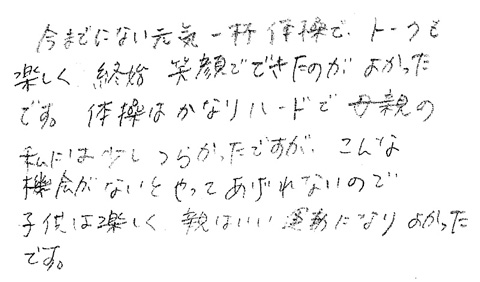 今までにない元気一杯体操で、トークも
楽しく 終始 笑顔でできたのが よかった
です。 体操はかなりハードで 母親の
私には少し つらかったですが、こんな
機会がないとやってあげれないので
子供は楽しく 親はいい 運動になり よかった
です。